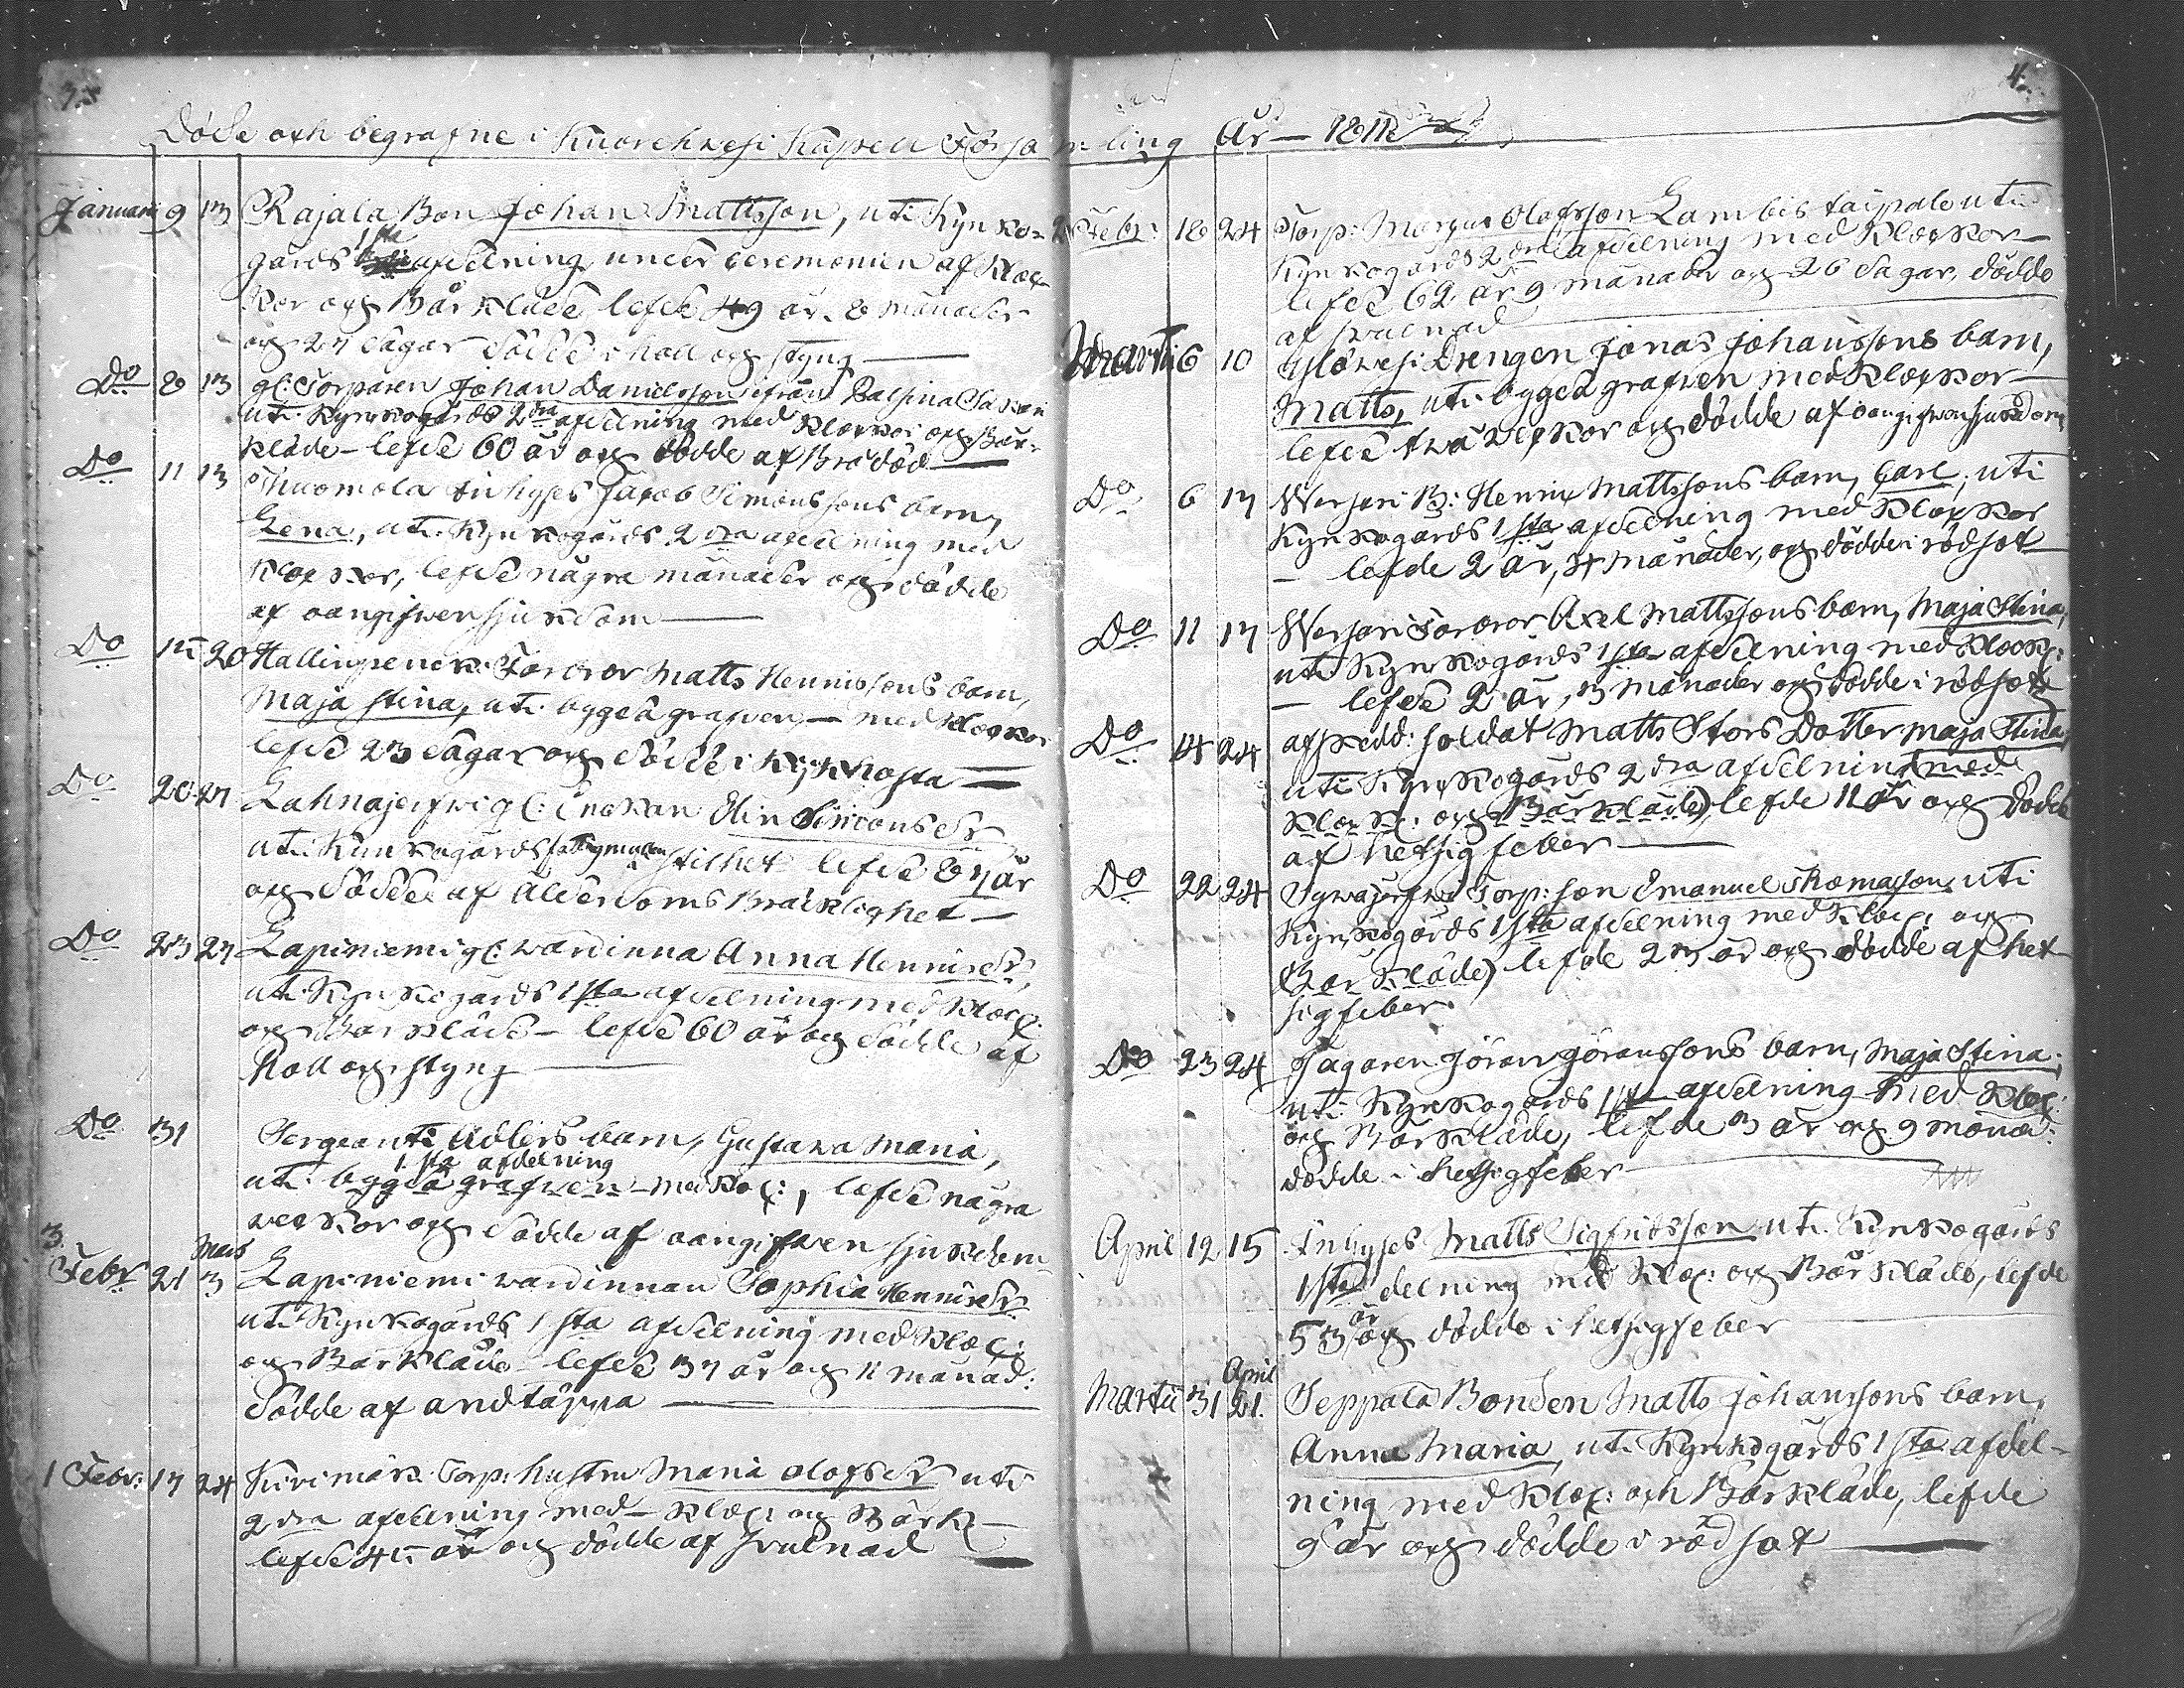 3.
Döde och begrafne i Kuorehwesi Kapell Församling År 1811
Januari 9 13 Rajala Bon Johan Mattsson, uti Kyrko-
gårds 1sta afdelning under ceremonien af Kloc-
kor och Bårkläde lefde 49 år 8 månader
och 27 dagar dödde i håll och styng
Do 8 13 gl: Torparen Johan Danielsson ifrån
uti Kyrkogårds 2dra afdelning med klockor och Bår-
kläde - lefde 60 år och dödde af Brådöd
Do 11 13 inhyses Jacob Simonssons barn,
Lena, uti Kyrkogårds 2dra afdelning med
klockor, lefde några månader och dödde
af oangifwen sjukdom
Do 15 20 Torpror Matts Henrissons barn,
Maja Stina, uti bygda grafwen - med klockor
lefde 23 dagar och dödde i Kikhosta
Do 20 27 Lahnajerfwi gl: Enckan Elin Simonsdr
uti Kyrkogårds i stilhet lefde 87 år
och dödde af ålderdoms Bräcklighet
Do 23 27 Lapiniemi gl: wärdinna Anna Henricsdr,
uti Kyrkogårds 1sta afdelning med klock:
och Bårkläde - lefde 60 år och dödde af
håll och styng
Do 31 Sergeanti Adlers barn, Gustava Maria,
1sta afdelning
uti bygda grafwen med kloc:, lefde några
weckor och dödde af oangifwen sjukdom
3. Mars
Febr 21 3 Lapiniemi wärdinnan Sophia Henricsdr
uti Kyrkogårds 1sta afdelning med kloc:
och Bårkläde lefde 37 år och 11 månad:
dödde af andtäppa
1 Febr: 17 24 Kivimäki Torp: hustru Maria Olofsdr uti
2dra afdelning med - kloc: och Bårk
lefde 45 år och dödde af swullnad
4.
2 Febr: 18 24 Torp: Marcus Olofsson Lambistaipale uti
Kyrkogårds 2dra afdelning med klockor
lefde 62 år 9 månader och 26 dagar, dödde
af swulnad
Martii 6 10 Drengen Jonas Johanssons barn,
Matts, uti bygda grafwen med klockor
lefde twå weckor och dödde af oangifwen sjukdom
Do 6 17 Wersari B: Henric Mattssons barn, Carl, uti
Kyrkogårds 1sta afdelning med klockor
- lefde 2 år, 4 månader, och dödde i rödsot
Do 11 17 Wersari Torpror Axel Mattssons barn, Maja Stina,
uti Kyrkogårds 1sta afdelning med klock:
- lefde 2 år, 3 månader och dödde i rödsot
Do 14 24 afskedd: soldat Matts Stors Dotter Maja Stina
uti Kyrkogårds 2dra afdelning (med
klock: och Bårkläde) lefde 11 år och dödde
af hetsigfeber
Do 22 24 Sywäjerfwi Torp: son Emanuel Thomasson uti
Kyrkogårds 1sta afdelning med kloc: och
Bårkläde) lefde 23 år och dödde af het-
sigfeber
Do 23 24 Jägaren Jöran Göranssons barn, Maja Stina,
uti Kyrkogårds 1sta afdelning med kloc:
och Bårkläde, lefde 3 år och 9 månad:
dödde i hetsigfeber
April 12 15 Inhyses Matts Sigfridsson uti Kyrkogårds
1sta delning med kloc: och Bårkläde, lefde
53 år och dödde i hetsigfeber
April
Martii 31 21. Seppälä Bonden Matts Johanssons barn,
Anna Maria, uti Kyrkogårds 1sta afdel-
ning med kloc: och Bårkläde, lefde
9 år och dödde i rödsot